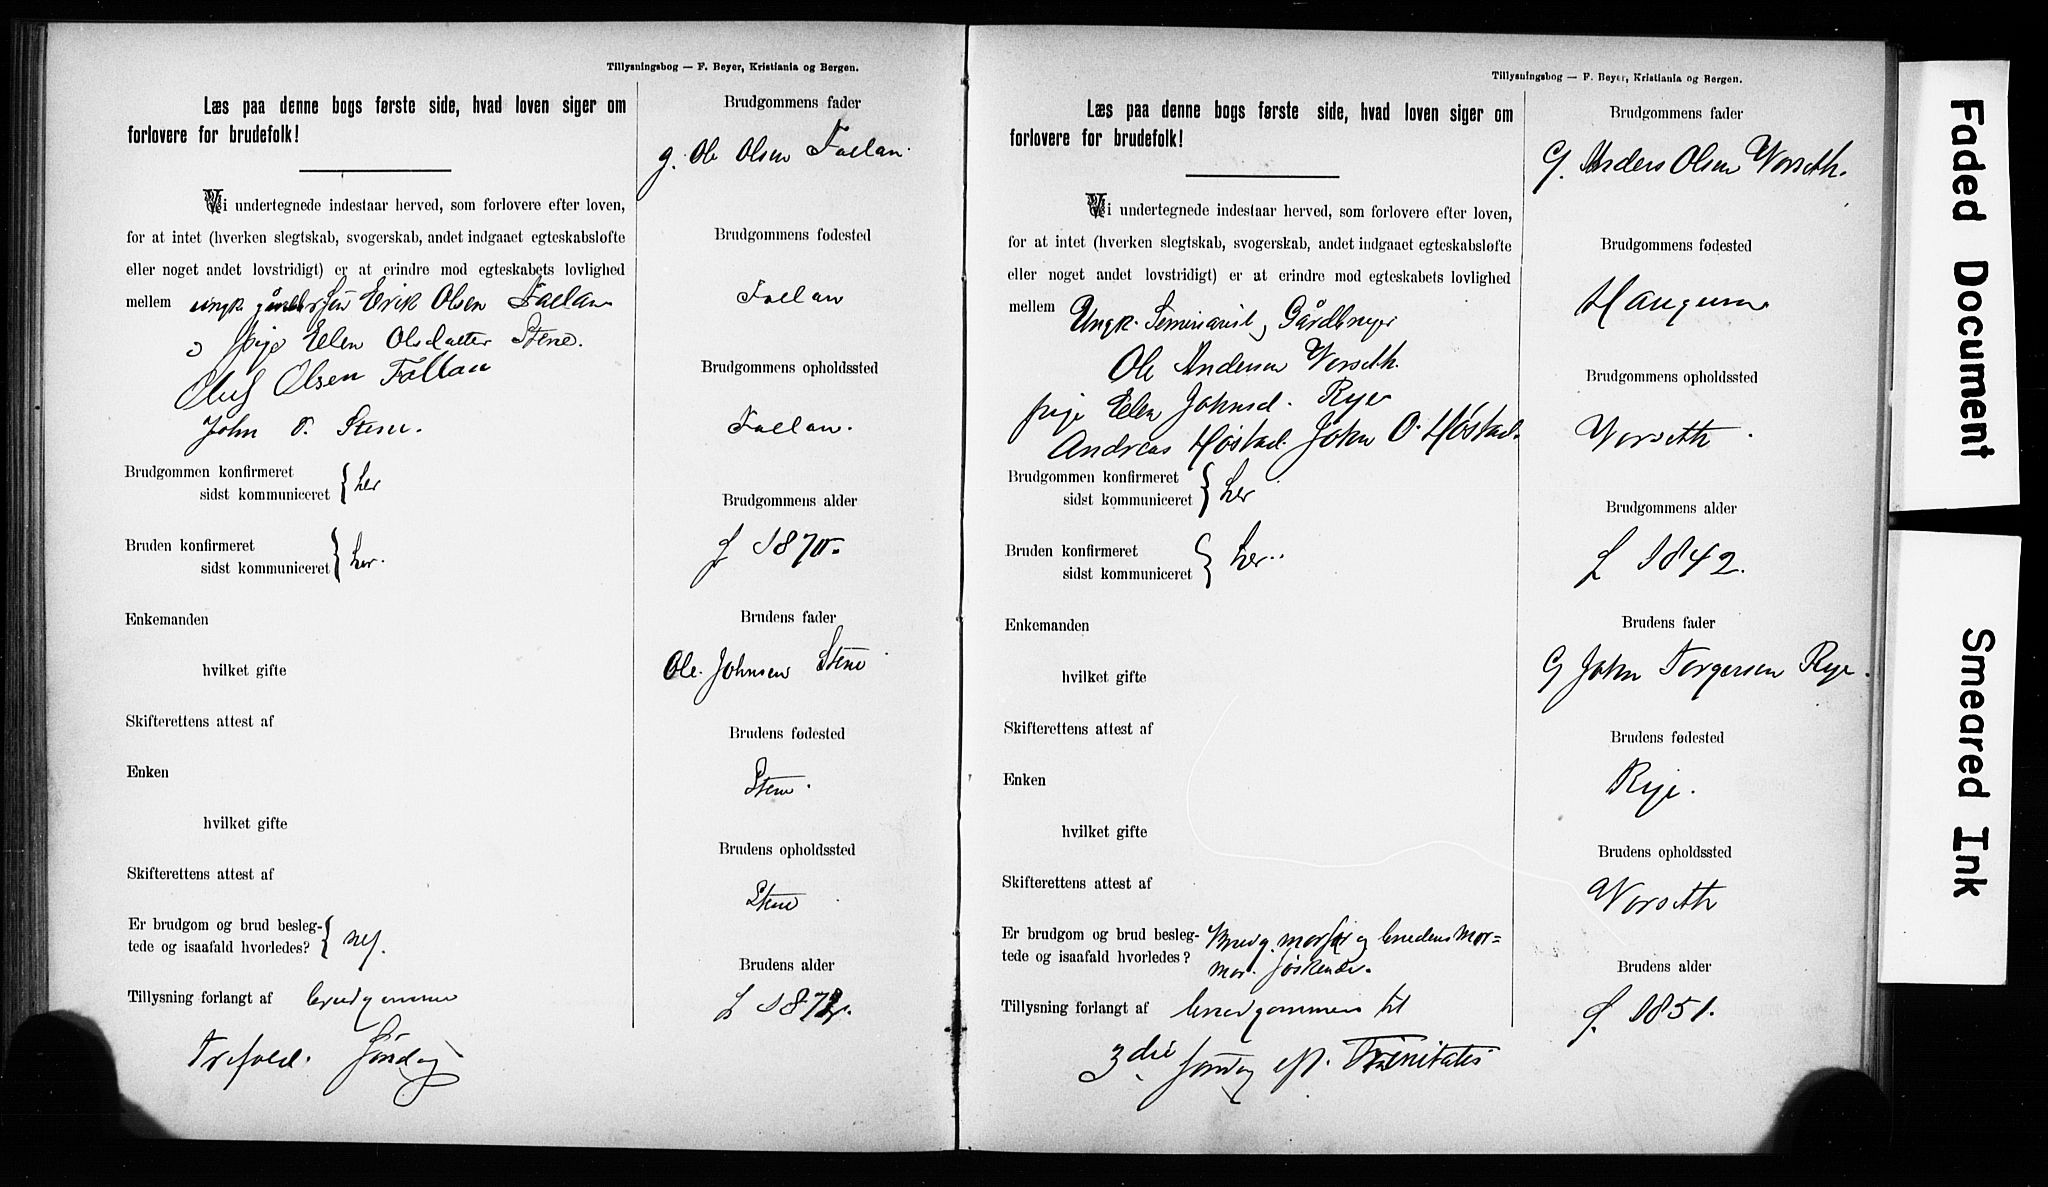 Tillysningsbog — F. Beyer, Kristiania og Bergen.
Læs paa denne bogs første side, hvad loven siger om
forlovere for brudefolk!
Vi undertegnede indestaar herved, som forlovere efter loven,
for at intet (hverken slegtskab, svogerskab, andet indgaaet egteskabsløfte
eller noget andet lovstridigt) er at erindre mod egteskabets lovlighed
mellem ungk Erik Olsen Faelan
pige Elen Olsdatter Stene.
Oluf Olsen Follan
John O. Stene.
Brudgommen konfirmeret
sidst kommuniceret } her
Bruden konfirmeret
sidst kommuniceret } her.
Enkemanden
hvilket gifte
Skifterettens attest af
Enken
hvilket gifte
Skifterettens attest af
Er brudgom og brud besleg-
tede og isaafald hvorledes? } nej.
Tillysning forlangt af brudgommen
Trefold. Søndag
Brudgommens fader
g. Ole Olsen Faelan.
Brudgommens fødested
Faelan
Brudgommens opholdssted
Faelan.
Brudgommens alder
f 1870.
Brudens fader
Ole Johnsen Stene
Brudens fødested
Stene.
Brudens opholdssted
Stene
Brudens alder
f 1872.
Tillysningsbog — F. Beyer, Kristiania og Bergen.
Læs paa denne bogs første side, hvad loven siger om
forlovere for brudefolk!
Vi undertegnede indestaar herved, som forlovere efter loven,
for at intet (hverken slegtskab, svogerskab, andet indgaaet egteskabsløfte
eller noget andet lovstridigt) er at erindre mod egteskabets lovlighed
mellem Ungk. Seminarist og Gårdbruger
Ole Andersen Vorseth.
pige Elen Johnsd. Rye
Andreas Høstad. John O. Høstad.
Brudgommen konfirmeret
sidst kommuniceret } her
Bruden konfirmeret
sidst kommuniceret } her.
Enkemanden
hvilket gifte
Skifterettens attest af
Enken
hvilket gifte
Skifterettens attest af
Er brudgom og brud besleg- Brudg. morfar og brudens mor=
tede og isaafald hvorledes? mor. søskende.
Tillysning forlangt af brudgommen til
3die søndag eft. Trinitatis
Brudgommens fader
G. Anders Olsen Vorseth.
Brudgommens fødested
Haugum
Brudgommens opholdssted
Vorseth
Brudgommens alder
f 1842.
Brudens fader
G John Torgersen Rye.
Brudens fødested
Rye.
Brudens opholdssted
Vorseth
Brudens alder
f. 1851.
Faded Document
Smeared Ink